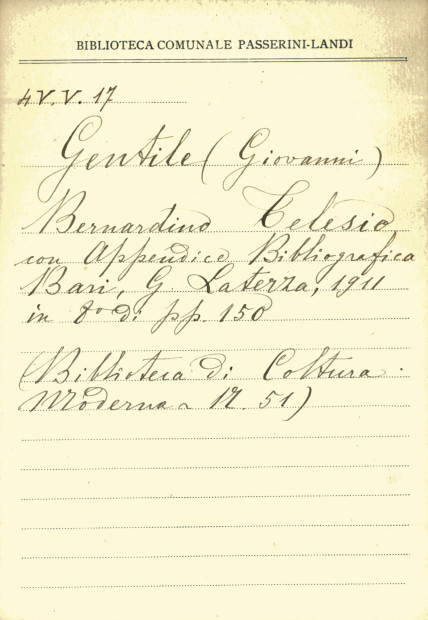 BIBLIOTECA COMUNALE PASSERINI-LANDI
4 V. V. 17
Gentile (Giovanni)
Bernardino Telesio,
con Appendice Bibliografica
Bari, G. Laterza, 1911
in 8º di pp. 150
(Biblioteca di Coltura
Moderna N. 51)